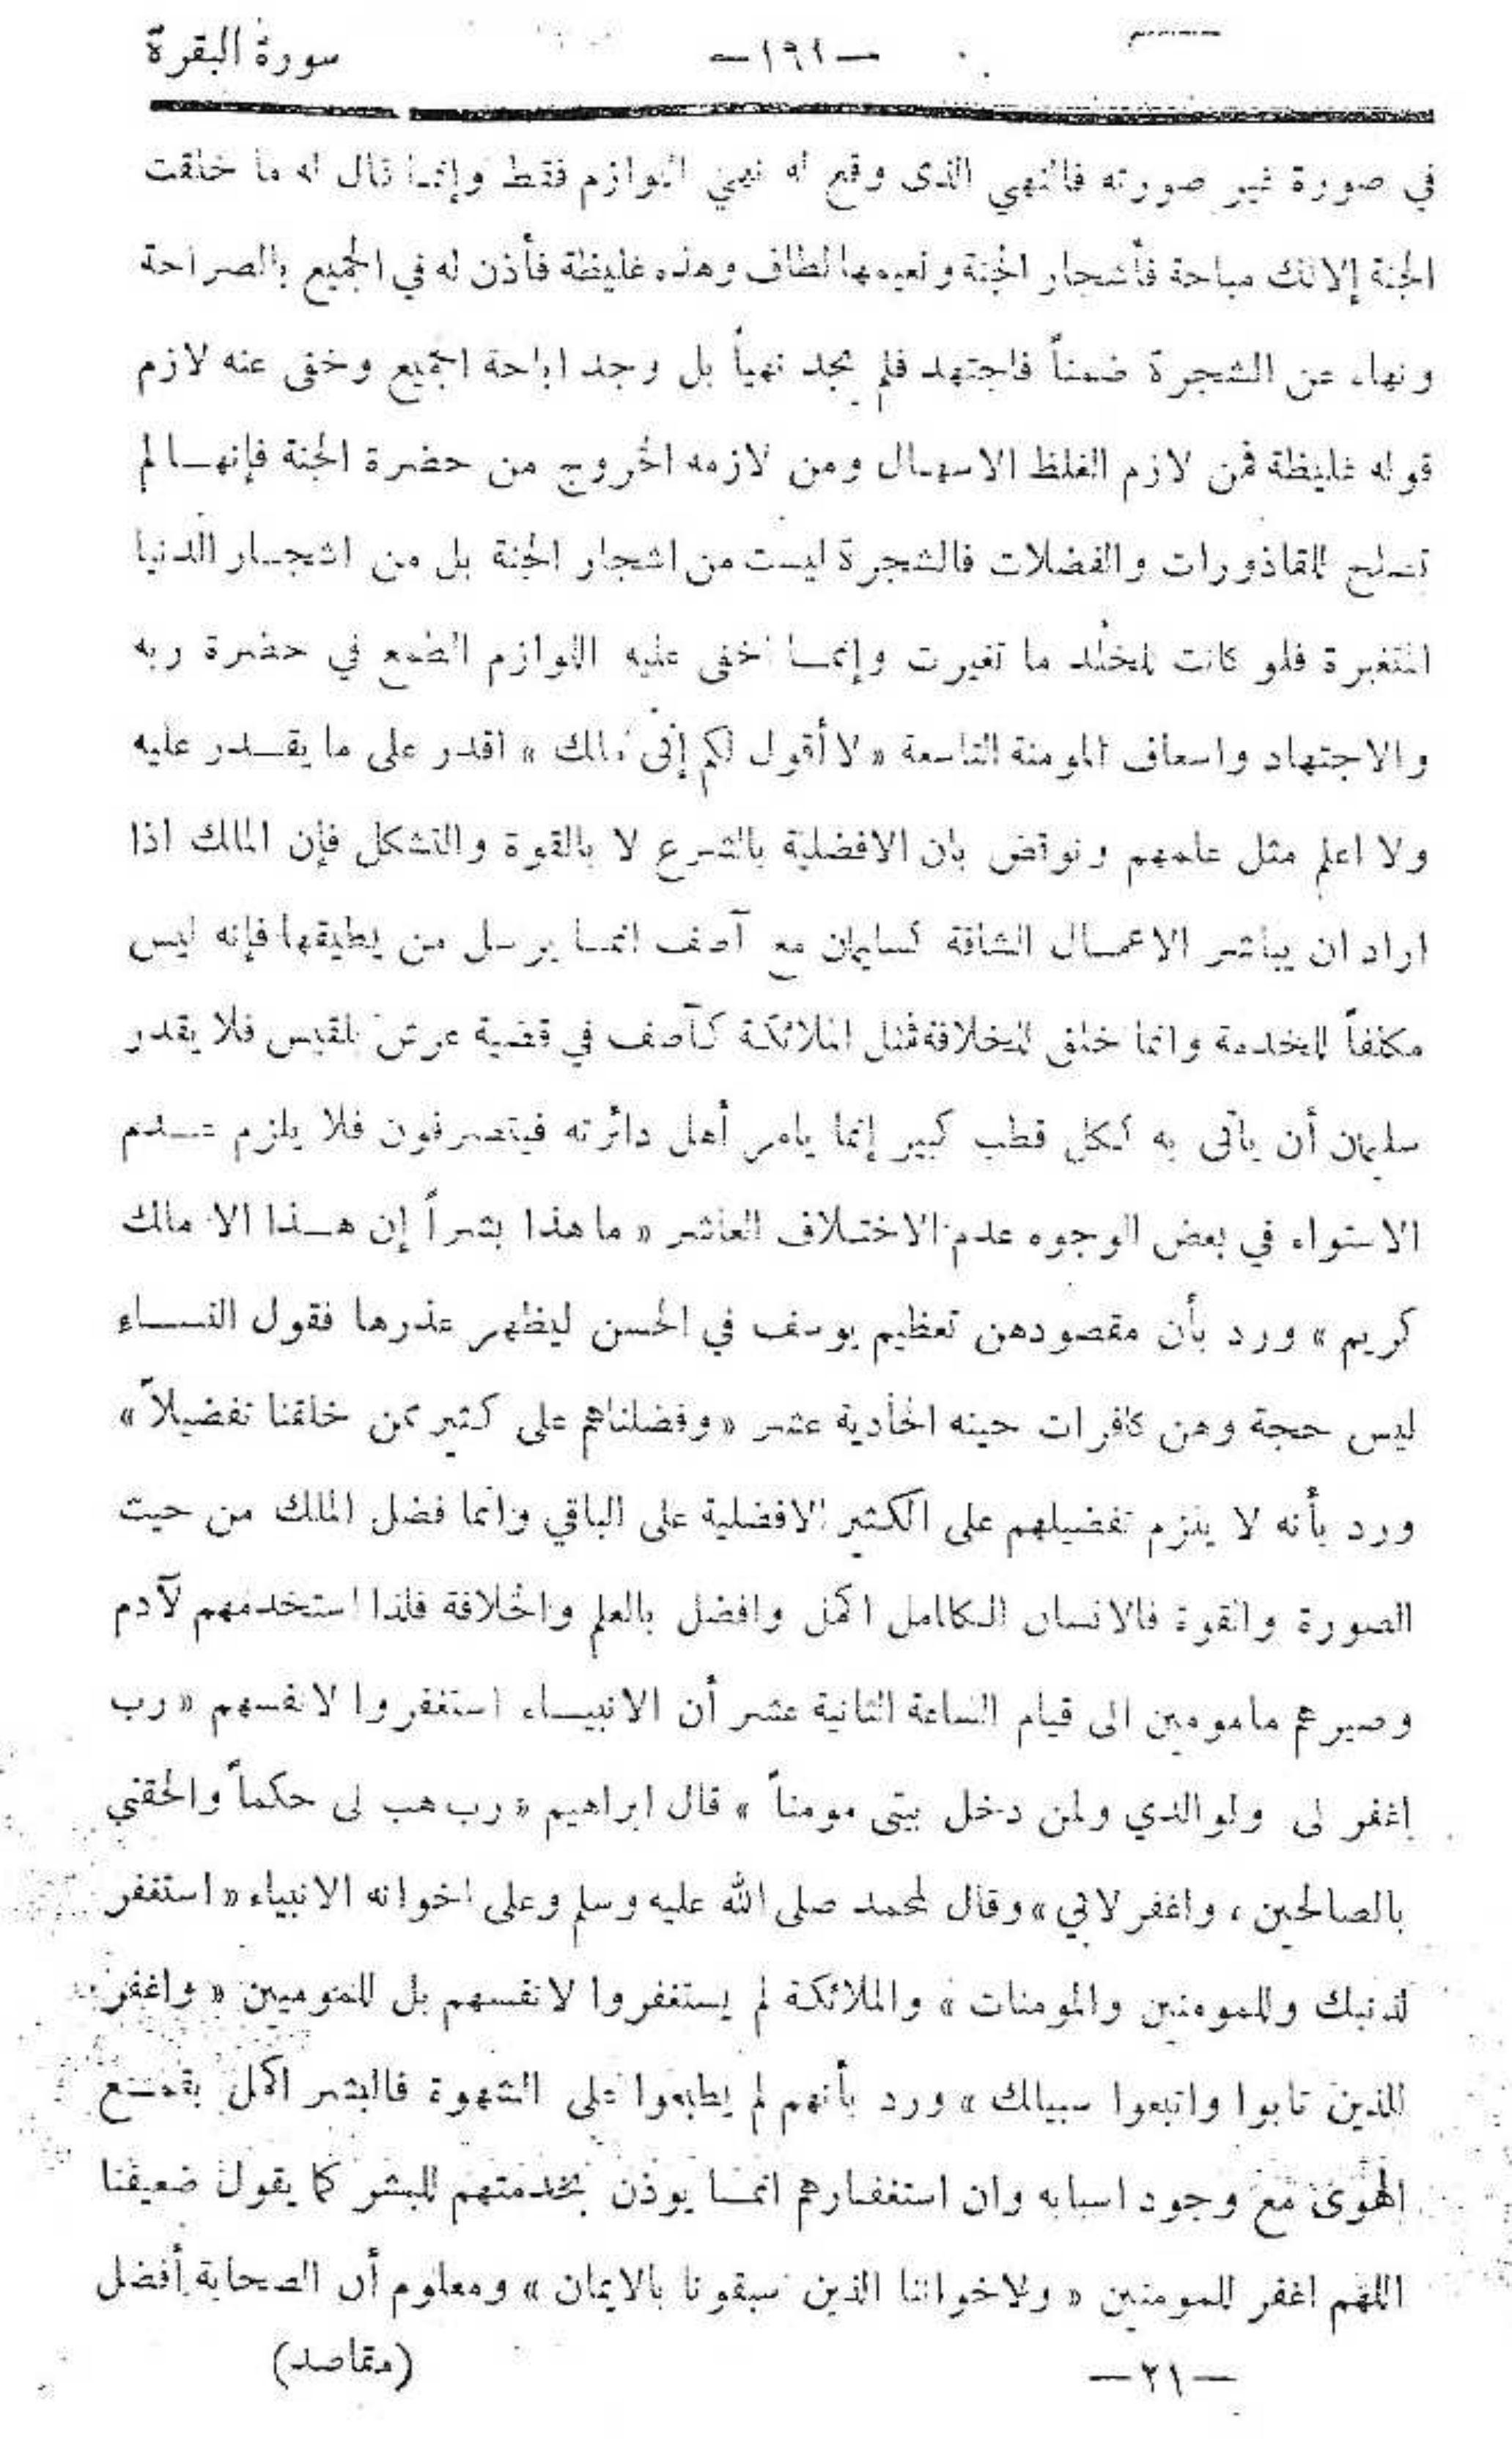 سورة البقرة
—١٦١—
في صورة غير صورته فالنهي الذى وقع له نهي اللوازم فقط وإنما قال له ما خلقت
الجنة إلا لك مباحة فأشجار الجنة ونعيمها لطاف وهذه غليظة فأذن له في الجميع بالصراحة
ونهاه عن الشجرة ضمناً فاجتهد فلم يجد نهياً بل وجد اباحة الجميع وخفى عنه لازم
قوله غليظة فمن لازم الغلظ الاسهال ومن لازمه الخروج من حضرة الجنة فإنها لم
تصلح للقاذورات والفضلات فالشجرة ليست من اشجار الجنة بل من اشجار الدنيا
المتغيرة فلو كانت للخلد ما تغيرت وإنما اخفى عليه اللوازم الطمع في حضرة ربه
والاجتهاد واسعاف المومنة التاسعة « لا أقول لكم إنى ملك » اقدر على ما يقدر عليه
ولا اعلم مثل علمهم ونوقض بان الافضلية بالشرع لا بالقوة والتشكل فإن الملك اذا
اراد ان يباشر الاعمال الشاقة كسليمان مع آصف انما يرسل من يطيقها فإنه ليس
مكلفاً للخدمة وانما خلق للخلافة فمثل الملائكة كآصف في قضية عرش بلقيس فلا يقدر
سليمان أن ياتى به ككل قطب كبير إنما يامر أهل دائرته فيتصرفون فلا يلزم عدم
الاستواء في بعض الوجوه عدم الاختلاف العاشر « ما هذا بشراً إن هذا الا ملك
كريم » ورد بأن مقصودهن تعظيم يوسف في الحسن ليظهر عذرها فقول النساء
ليس حجة وهن كافرات حينه الحادية عشر « وفضلناهم على كثير ممن خلقنا تفضيلاً »
ورد بأنه لا يلزم تفضيلهم على الكثير الافضلية على الباقي وانما فضل الملك من حيث
الصورة والقوة فالانسان الكامل اكمل وافضل بالعلم والخلافة فلذا استخدمهم لآدم
وصيرهم مامومين الى قيام الساعة الثانية عشر أن الانبياء استغفروا لانفسهم « رب
إغفر لى ولوالدي ولمن دخل بيتى مومناً » قال ابراهيم « رب هب لى حكماً والحقني
بالصالحين ، واغفر لابي » وقال لمحمد صلى الله عليه وسلم وعلى اخوانه الانبياء « استغفر
لذنبك وللمومنين والمومنات » والملائكة لم يستغفروا لانفسهم بل للمومنين « واغفر
للذين تابوا واتبعوا سبيلك » ورد بأنهم لم يطبعوا على الشهوة فالبشر اكمل بقمع
الهوى مع وجود اسبابه وان استغفارهم انما يوذن بخدمتهم للبشر كما يقول ضعيفنا
اللهم اغفر للمومنين « ولاخواننا الذين سبقونا بالايمان » ومعلوم أن الصحابة أفضل
(مقاصد)
—٢١—